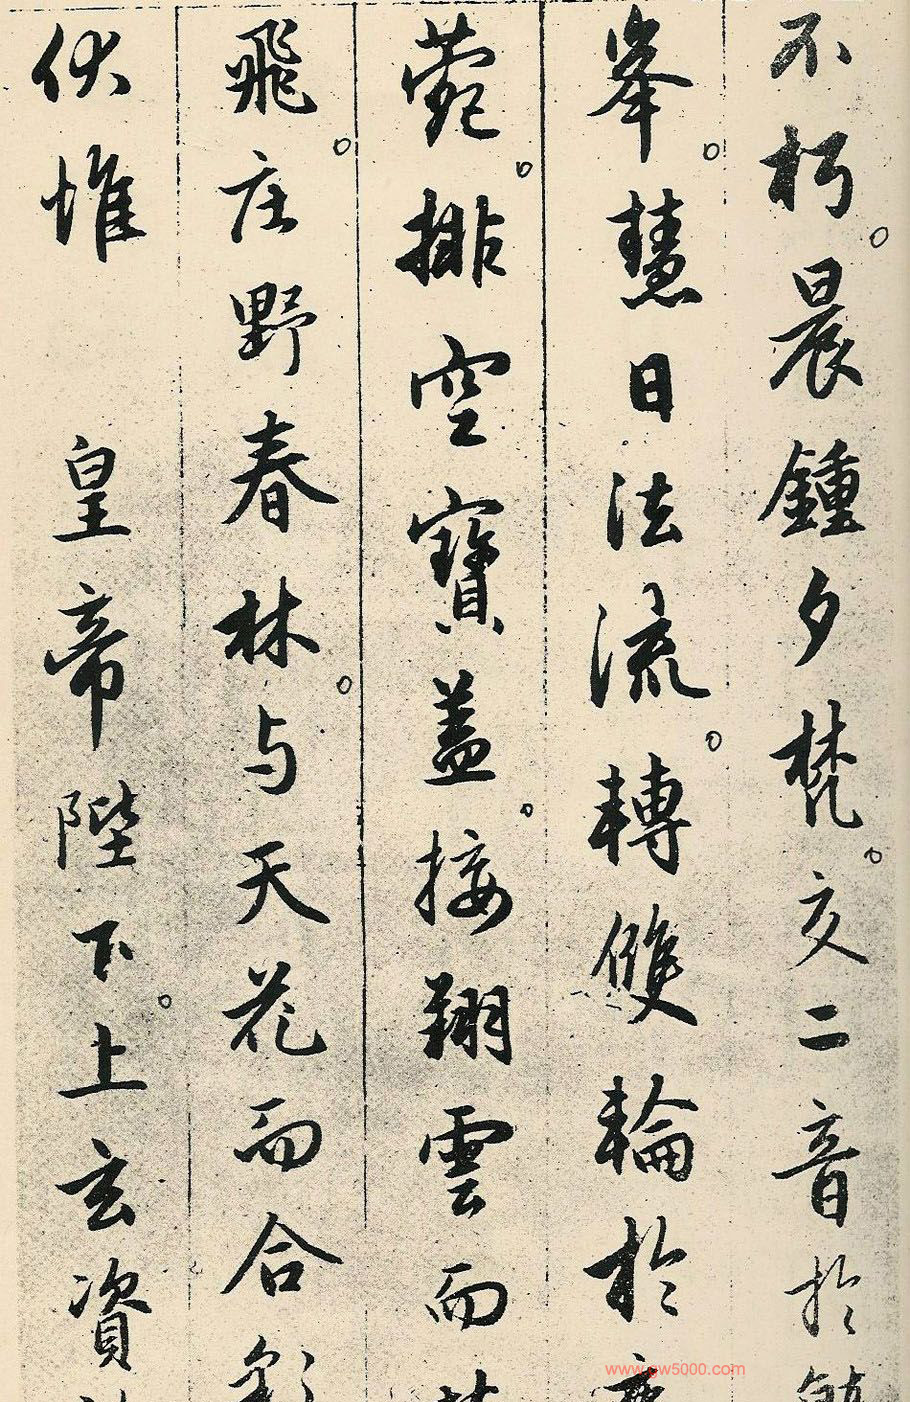 不朽。晨鍾夕梵。交二音於
峯。慧日法流。轉雙輪於
菀。排空寶蓋。接翔雲而
飛。庄野春林。与天花而合彩
伏惟 皇帝陛下。上玄資
www.gw5000.com